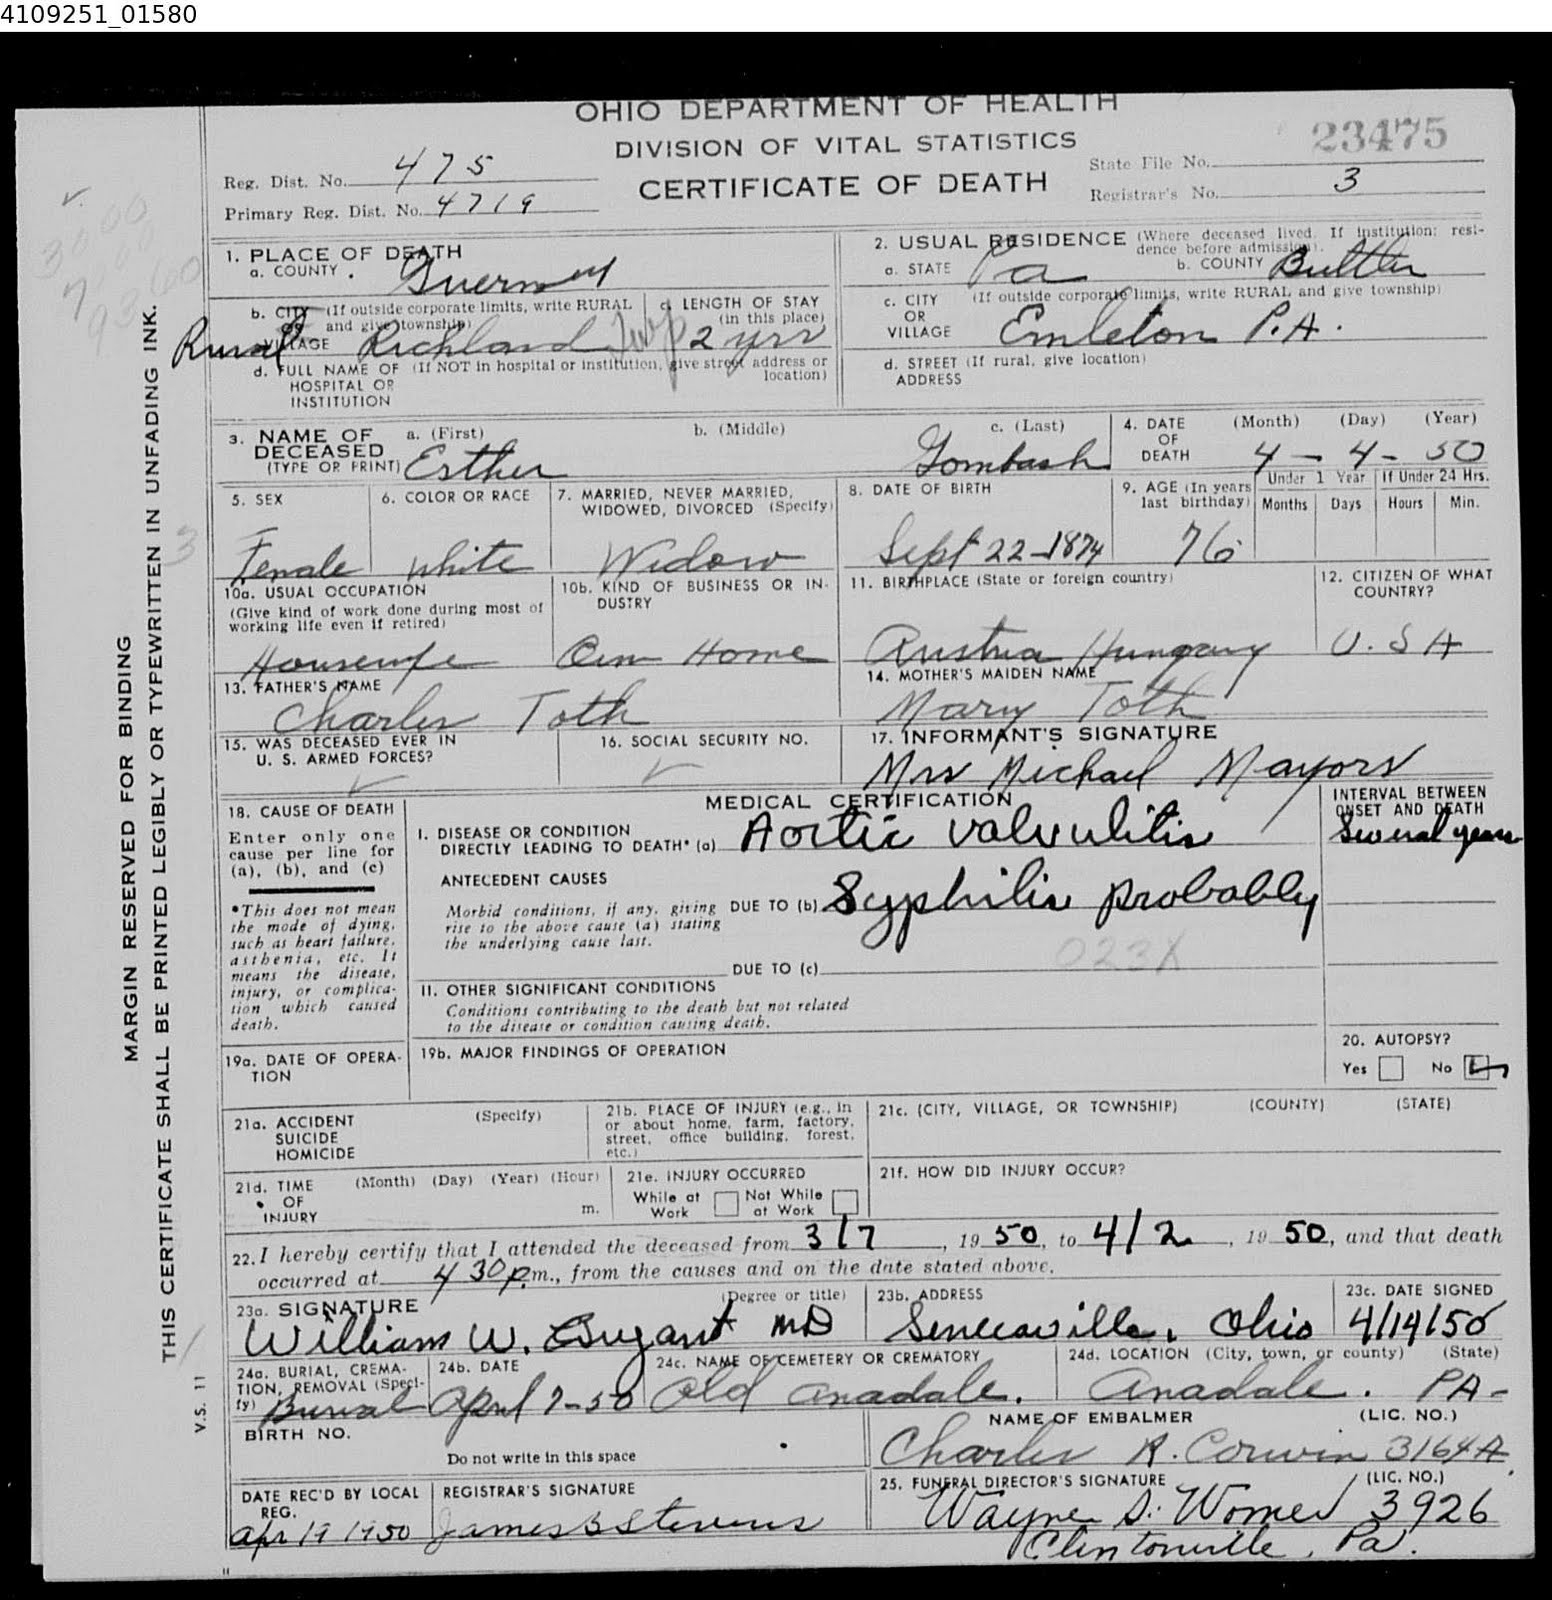 4109251_01580
OHIO DEPARTMENT OF HEALTH
DIVISION OF VITAL STATISTICS
CERTIFICATE OF DEATH
Reg. Dist. No. 475
Primary Reg. Dist. No. 4719
State File No. 23475
Registrar's No. 3
1. PLACE OF DEATH
a. COUNTY. Guernsey
b. CITY (If outside corporate limits, write RURAL
OR and give township)
VILLAGE Rural Richland Twp
c. LENGTH OF STAY
(in this place)
2 yrs
d. FULL NAME OF (If NOT in hospital or institution, give street address or
HOSPITAL OR location)
INSTITUTION
2. USUAL RESIDENCE (Where deceased lived. If institution: resi-
dence before admission).
a. STATE Pa b. COUNTY Buttler
c. CITY (If outside corporate limits, write RURAL and give township)
OR
VILLAGE Emleton P.A.
d. STREET (If rural, give location)
ADDRESS
3. NAME OF a. (First) b. (Middle) c. (Last)
DECEASED
(TYPE OR PRINT) Esther Gombash
4. DATE (Month) (Day) (Year)
OF
DEATH 4 - 4 - 50
5. SEX
Female
6. COLOR OR RACE
White
7. MARRIED, NEVER MARRIED,
WIDOWED, DIVORCED (Specify)
Widow
8. DATE OF BIRTH
Sept 22-1874
9. AGE (In years
last birthday)
76
Under 1 Year If Under 24 Hrs.
Months Days Hours Min.
10a. USUAL OCCUPATION
(Give kind of work done during most of
working life even if retired)
Housewife
10b. KIND OF BUSINESS OR IN-
DUSTRY
Own Home
11. BIRTHPLACE (State or foreign country)
Austria Hungary
12. CITIZEN OF WHAT
COUNTRY?
U.S A
13. FATHER'S NAME
Charles Toth
14. MOTHER'S MAIDEN NAME
Mary Toth
15. WAS DECEASED EVER IN
U. S. ARMED FORCES?
16. SOCIAL SECURITY NO.
17. INFORMANT'S SIGNATURE
Mrs Michael Mayors
MEDICAL CERTIFICATION
INTERVAL BETWEEN
ONSET AND DEATH
18. CAUSE OF DEATH
Enter only one
cause per line for
(a), (b), and (c)
*This does not mean
the mode of dying,
such as heart failure,
asthenia, etc. It
means the disease,
injury, or complica-
tion which caused
death.
I. DISEASE OR CONDITION
DIRECTLY LEADING TO DEATH* (a) Aortic valvulitis Several years
ANTECEDENT CAUSES
Morbid conditions, if any, giving
rise to the above cause (a) stating
the underlying cause last.
DUE TO (b) Syphilis probably
023X
DUE TO (c)
II. OTHER SIGNIFICANT CONDITIONS
Conditions contributing to the death but not related
to the disease or condition causing death.
19a. DATE OF OPERA-
TION
19b. MAJOR FINDINGS OF OPERATION
20. AUTOPSY?
Yes No
21a. ACCIDENT (Specify)
SUICIDE
HOMICIDE
21b. PLACE OF INJURY (e.g., in
or about home, farm, factory,
street, office building, forest,
etc.)
21c. (CITY, VILLAGE, OR TOWNSHIP) (COUNTY) (STATE)
21d. TIME (Month) (Day) (Year) (Hour)
OF
INJURY m.
21e. INJURY OCCURRED
While at Work Not While at Work
21f. HOW DID INJURY OCCUR?
22. I hereby certify that I attended the deceased from 3/7, 1950, to 4/2, 1950, and that death
occurred at 4 30 p.m., from the causes and on the date stated above.
23a. SIGNATURE (Degree or title)
William W. Bryant MD
23b. ADDRESS
Senecaville, Ohio
23c. DATE SIGNED
4/14/50
24a. BURIAL, CREMA-
TION, REMOVAL (Speci-
fy) Burial
24b. DATE
April 7-50
24c. NAME OF CEMETERY OR CREMATORY
Old Anadale.
24d. LOCATION (City, town, or county) (State)
Anadale. PA-
BIRTH NO.
Do not write in this space
NAME OF EMBALMER (LIC. NO.)
Charles R. Corwin 3164A
DATE REC'D BY LOCAL
REG.
Apr 19 1950
REGISTRAR'S SIGNATURE
James B Stevens
25. FUNERAL DIRECTOR'S SIGNATURE (LIC. NO.)
Wayne S. Womer 3926
Clintonville, Pa.
MARGIN RESERVED FOR BINDING
THIS CERTIFICATE SHALL BE PRINTED LEGIBLY OR TYPEWRITTEN IN UNFADING INK.
V.S. 11
3